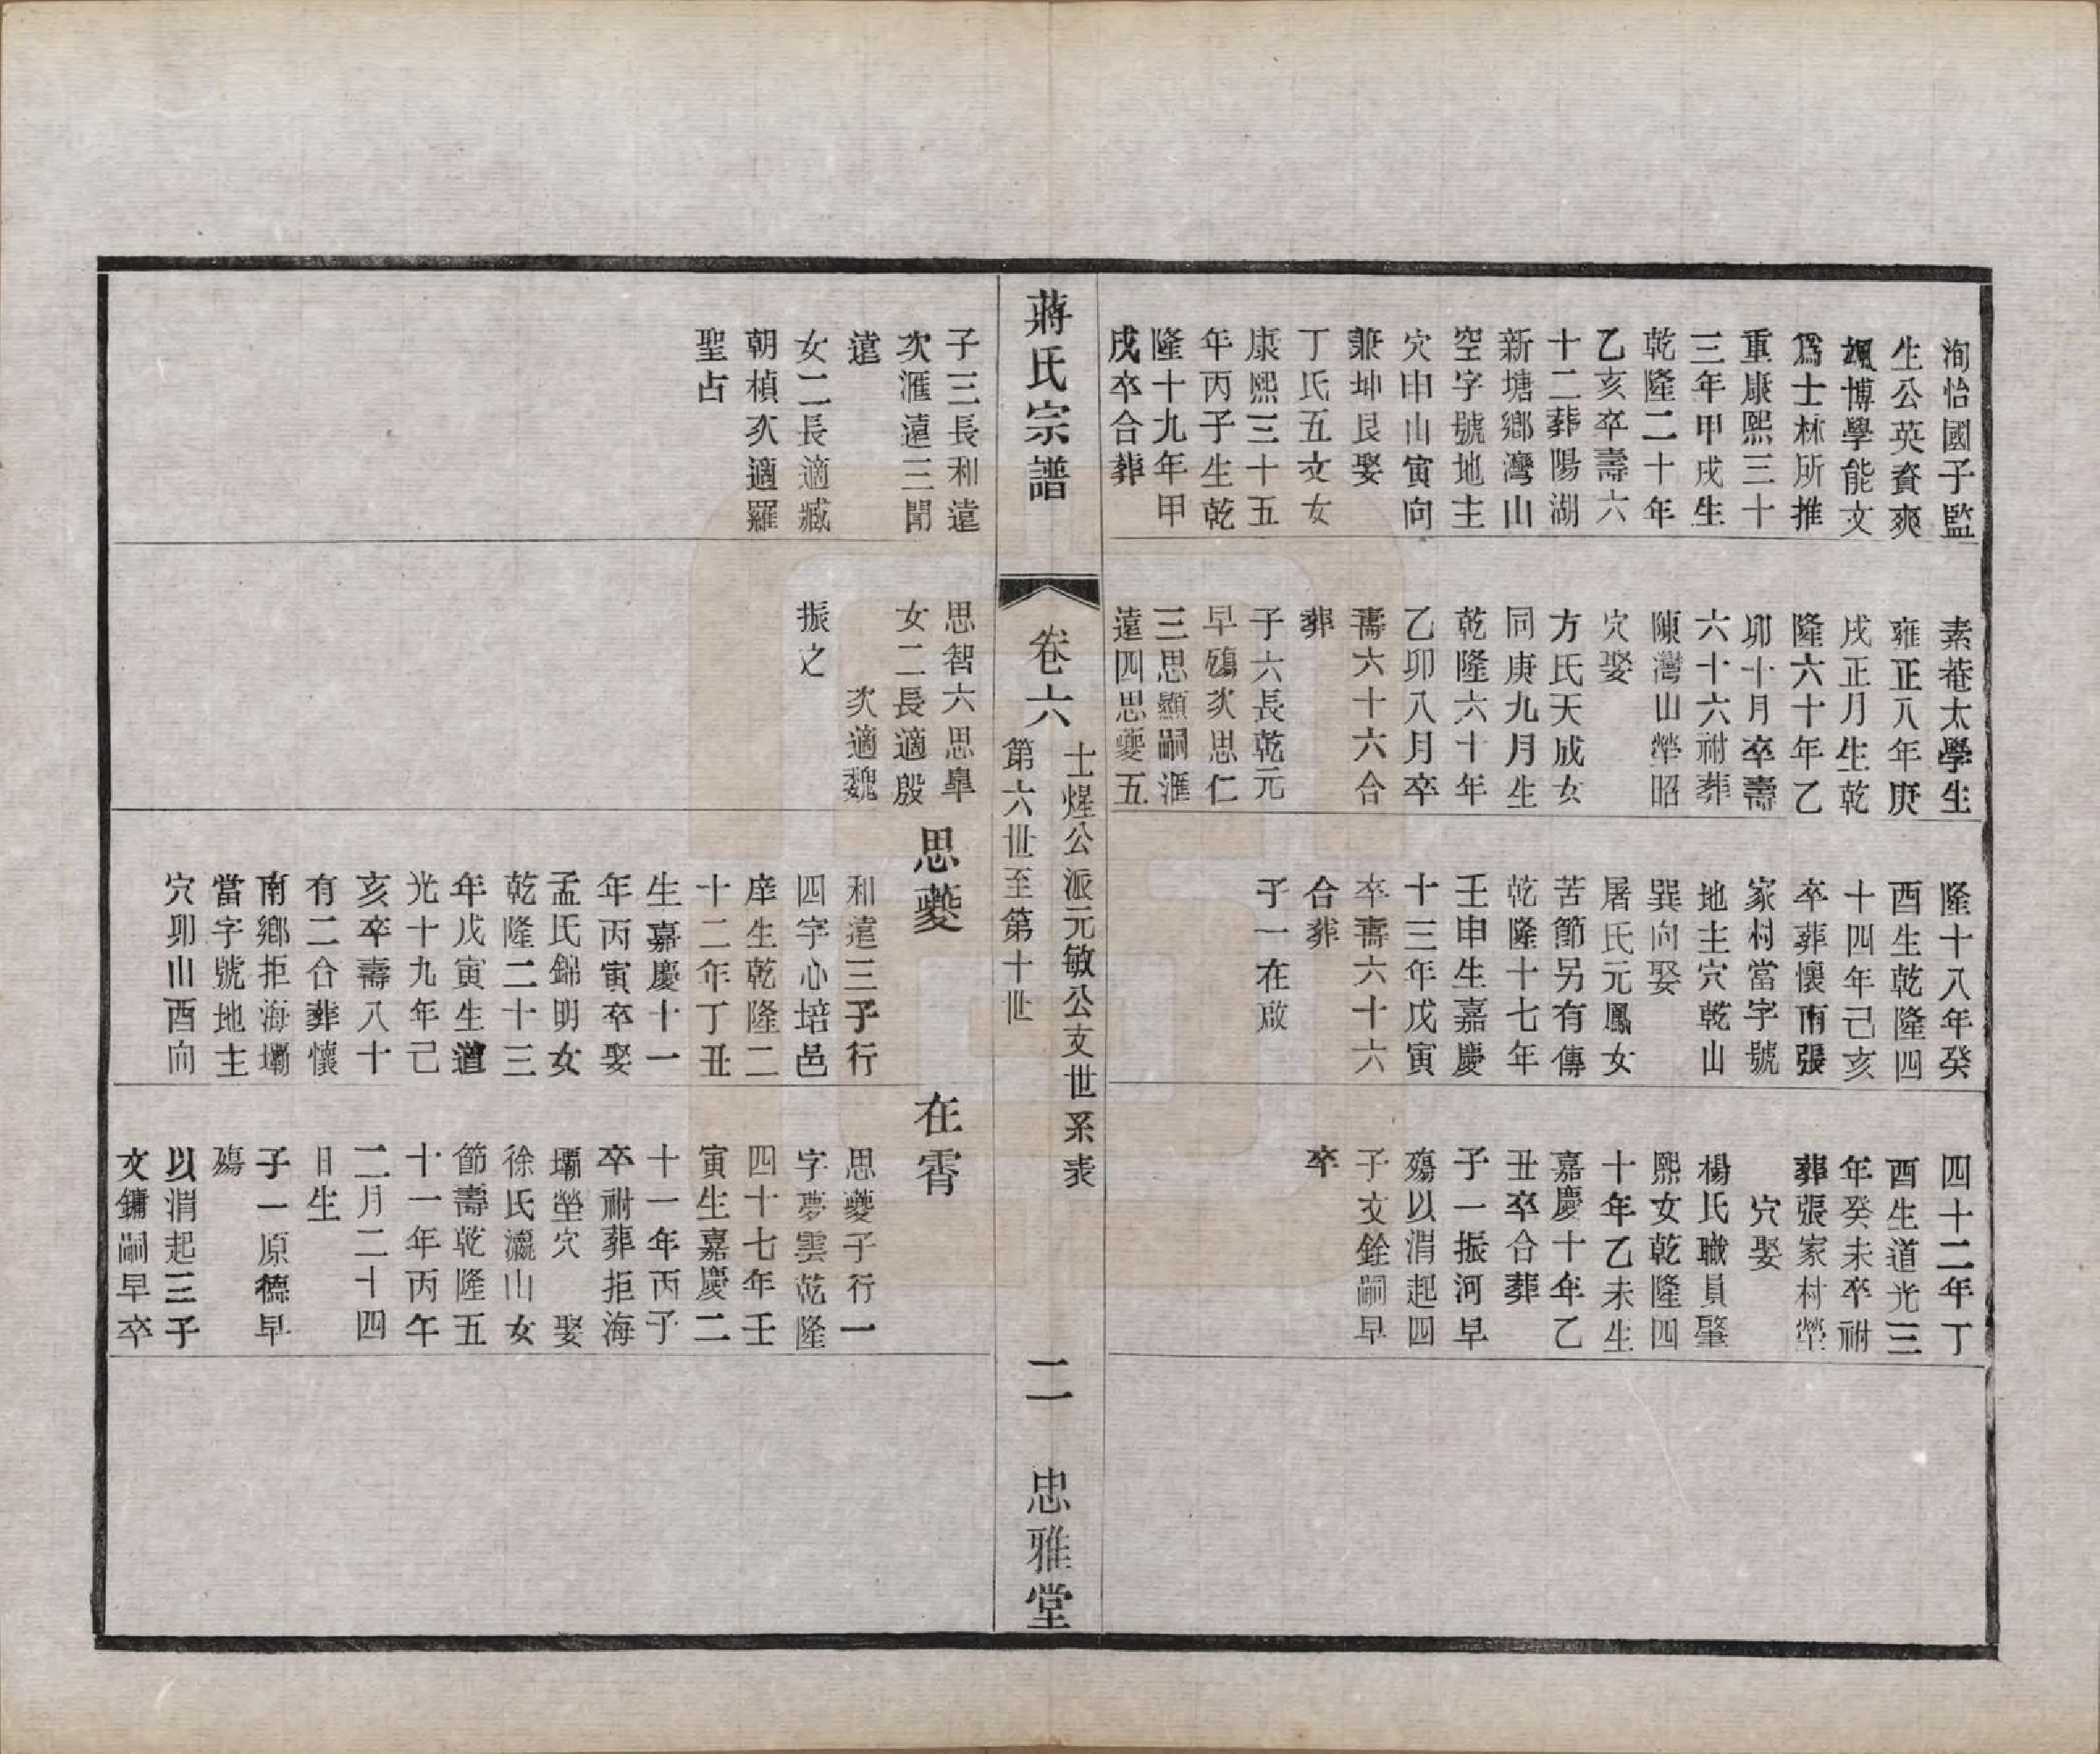 洵怡國子監
生公英資爽
颯博學能文
爲士林所推
重康熙三十
三年甲戌生
乾隆二十年
乙亥卒壽六
十二葬陽湖
新塘鄉灣山
空字號地主
穴申山寅向
兼坤艮娶
丁氏五文女
康熙三十五
年丙子生乾
隆十九年甲
戌卒合葬
素菴太學生
雍正八年庚
戌正月生乾
隆六十年乙
卯十月卒壽
六十六祔葬
陳灣山塋昭
穴娶
方氏天成女
同庚九月生
乾隆六十年
乙卯八月卒
壽六十六合
葬
子六長乾元
早殤次思仁
三思顯嗣滙
遠四思夔五
隆十八年癸
酉生乾隆四
十四年己亥
卒葬懷南張
家村當字號
地主穴乾山
巽向娶
屠氏元鳳女
苦節另有傳
乾隆十七年
壬申生嘉慶
十三年戊寅
卒壽六十六
合葬
子一在啟
四十二年丁
酉生道光三
年癸未卒祔
葬張家村塋
穴娶
楊氏職員肇
熙女乾隆四
十年乙未生
嘉慶十年乙
丑卒合葬
子一振河早
殤以渭起四
子文銓嗣早
卒
蔣氏宗譜
卷六
士煋公派元敏公支世系表
第六世至第十世
二
忠雅堂
子三長和遠
次滙遠三聞
遠
女二長適臧
朝楨次適羅
聖占
思智六思臯
女二長適殷
次適魏
振之
思夔
和遠三子行
四字心培邑
庠生乾隆二
十二年丁丑
生嘉慶十一
年丙寅卒娶
孟氏錦明女
乾隆二十三
年戊寅生道
光十九年己
亥卒壽八十
有二合葬懷
南鄉拒海壩
當字號地主
穴卯山酉向
在霄
思夔子行一
字夢雲乾隆
四十七年壬
寅生嘉慶二
十一年丙子
卒祔葬拒海
壩塋穴 娶
徐氏瀛山女
節壽乾隆五
十一年丙午
二月二十四
日生
子一原德早
殤
以渭起三子
文鏞嗣早卒